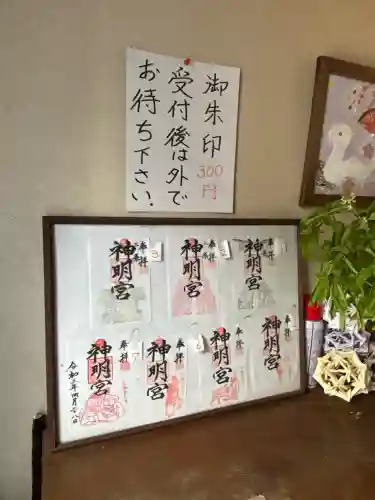 御朱印 300円
受付後は外で
お待ち下さい.
奉拝
神明宮
3
奉拝
神明宮
2
奉拝
神明宮
1
奉拝
神明宮
奉拝
神明宮
奉拝
神明宮
奉拝
神明宮